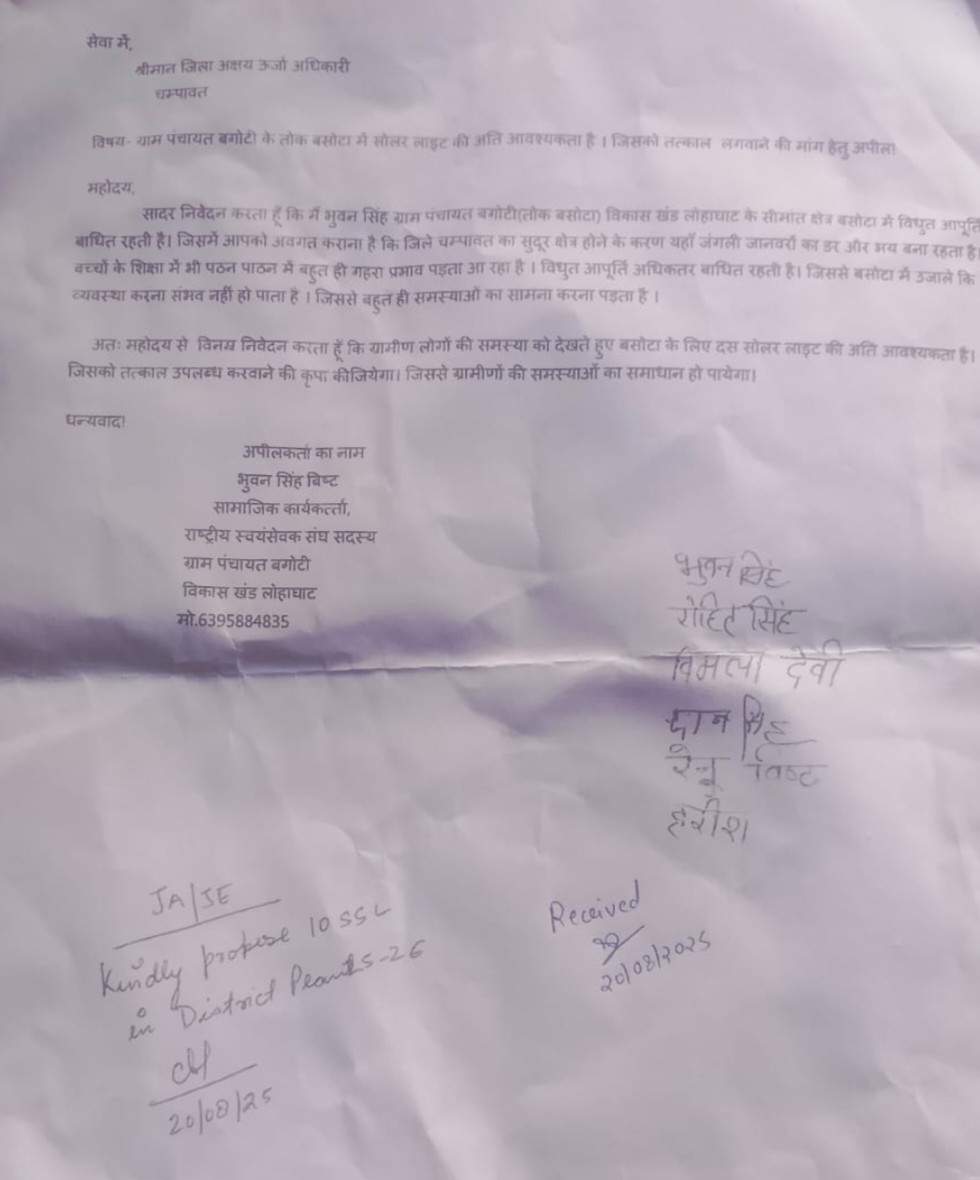 सेवा में,
श्रीमान जिला अक्षय ऊर्जा अधिकारी
चम्पावत
विषय- ग्राम पंचायत बगोटी के तोक बसोटा में सोलर लाइट की अति आवश्यकता है । जिसको तत्काल लगवाने की मांग हेतु अपील।
महोदय,
सादर निवेदन करता हूँ कि मैं भुवन सिंह ग्राम पंचायत बगोटी(तोक बसोटा) विकास खंड लोहाघाट के सीमांत क्षेत्र बसोटा में विधुत आपूर्ति
बाधित रहती है। जिसमें आपको अवगत कराना है कि जिले चम्पावत का सुदूर क्षेत्र होने के करण यहाँ जंगली जानवरों का डर और भय बना रहता है।
बच्चों के शिक्षा में भी पठन पाठन में बहुत ही गहरा प्रभाव पड़ता आ रहा है । विधुत आपूर्ति अधिकतर बाधित रहती है। जिससे बसोटा में उजाले कि
व्यवस्था करना संभव नहीं हो पाता है । जिससे बहुत ही समस्याओं का सामना करना पड़ता है ।
अतः महोदय से विनम्र निवेदन करता हूँ कि ग्रामीण लोगों की समस्या को देखते हुए बसोटा के लिए दस सोलर लाइट की अति आवश्यकता है।
जिसको तत्काल उपलब्ध करवाने की कृपा कीजियेगा। जिससे ग्रामीणों की समस्याओं का समाधान हो पायेगा।
धन्यवाद!
अपीलकर्ता का नाम
भुवन सिंह बिष्ट
सामाजिक कार्यकर्त्ता,
राष्ट्रीय स्वयंसेवक संघ सदस्य
ग्राम पंचायत बगोटी
विकास खंड लोहाघाट
मो.6395884835
भुवन सिंह
रोहित सिंह
विमला देवी
दान सिंह
रेनू बिष्ट
हरीश
JA/JE
Kindly propose 10 SSL
in District Plan 25-26
20/08/25
Received
20/08/2025